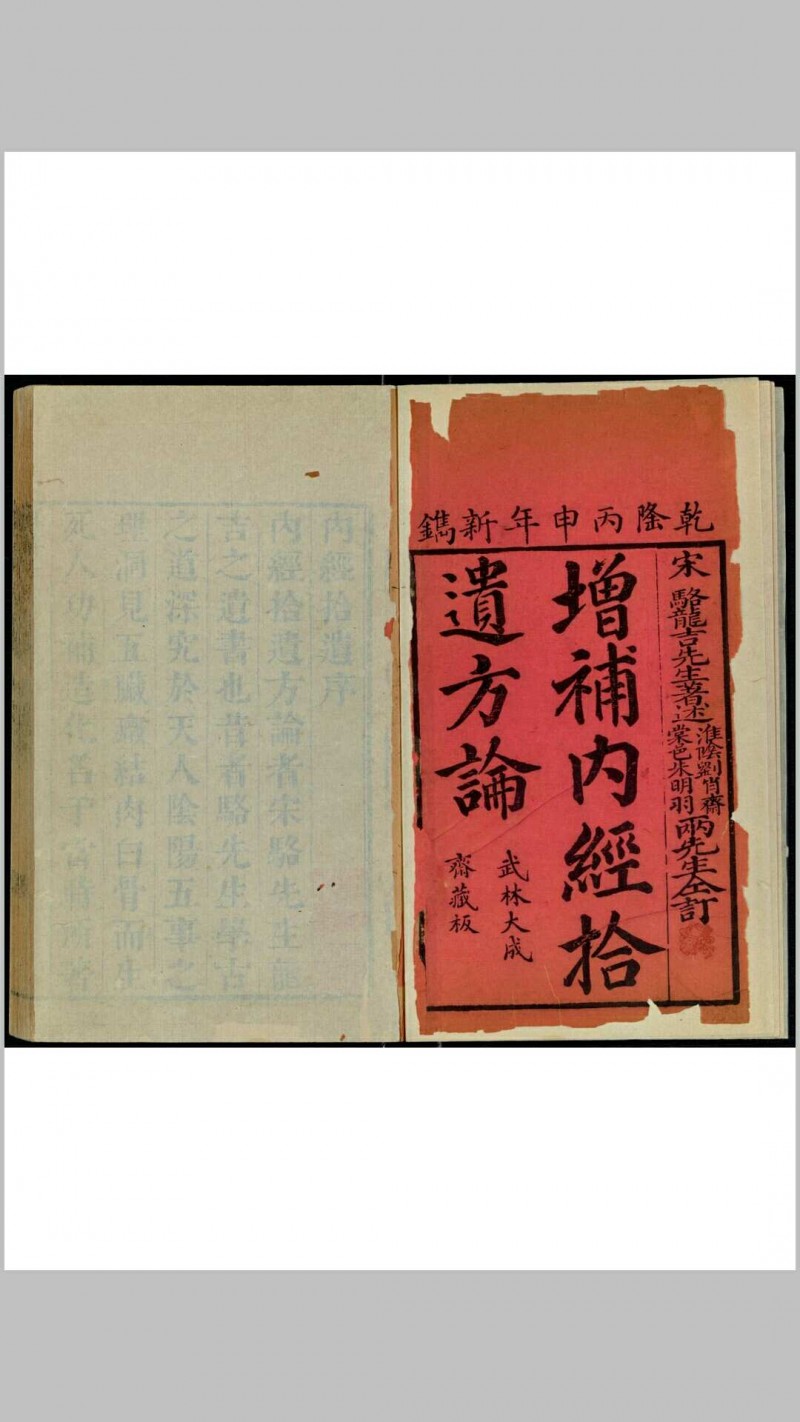 乾隆丙申年新鐫
宋 駱龍吉先生著述 淮陰劉宵齋 棠邑朱明羽 兩先生仝訂
增補內經拾
遺方論
武林大成
齋藏板
內經拾遺序
內經拾遺方論者宋駱先生龍
吉之遺書也昔者駱先生學古
之道深究於天人陰陽五事之
理洞見五臟癥結肉白骨而生
死人功補造化名于當時所著